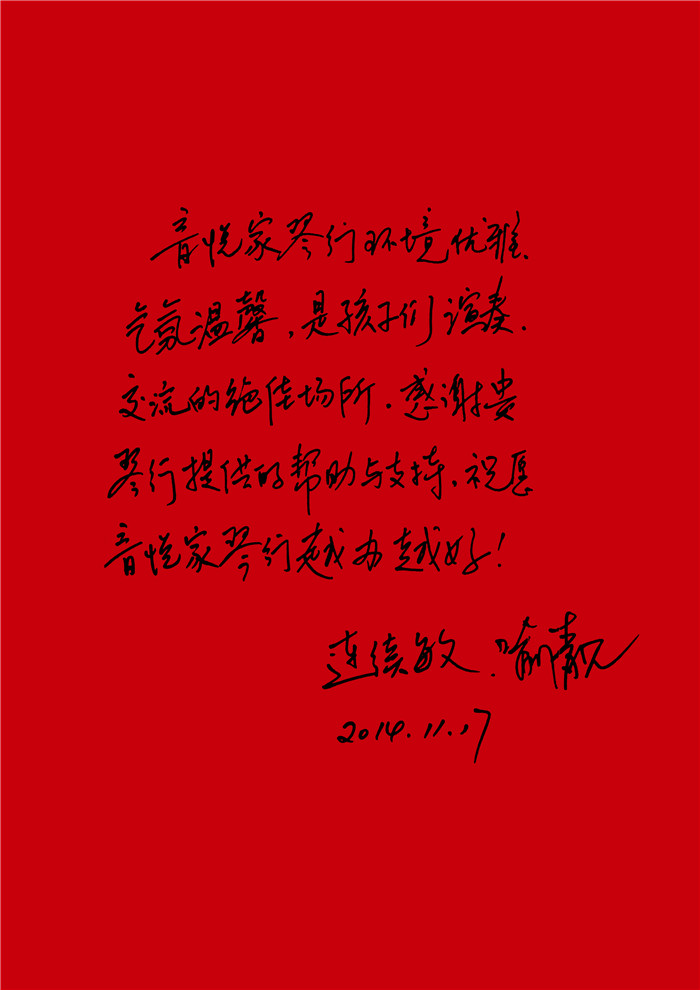 音悦家琴行环境优雅、
气氛温馨，是孩子们演奏、
交流的绝佳场所。感谢贵
琴行提供的帮助与支持。祝愿
音悦家琴行越办越好！
连续敏、喻靓
2014.11.17